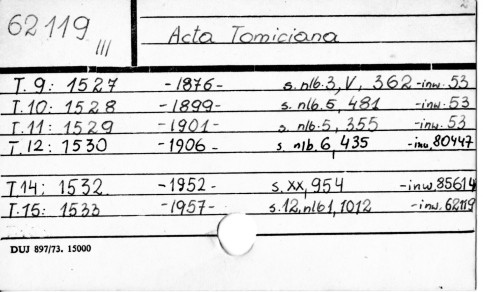 2
62119 III
Acta Tomiciana
T. 9: 1527 -1876- s. nlb. 3, V, 362 -inw. 53
T. 10: 1528 -1899- s. nlb. 5, 481 -inw. 53
T. 11: 1529 -1901- s. nlb. 5, 355 -inw. 53
T. 12: 1530 -1906- s. nlb. 6, 435 -inw, 80447
T 14: 1532 -1952- s. XX, 954 -inw, 85614
T. 15: 1533 -1957- s. 12, nlb 1, 1012 -inw, 62119
DUJ 897/73. 15000